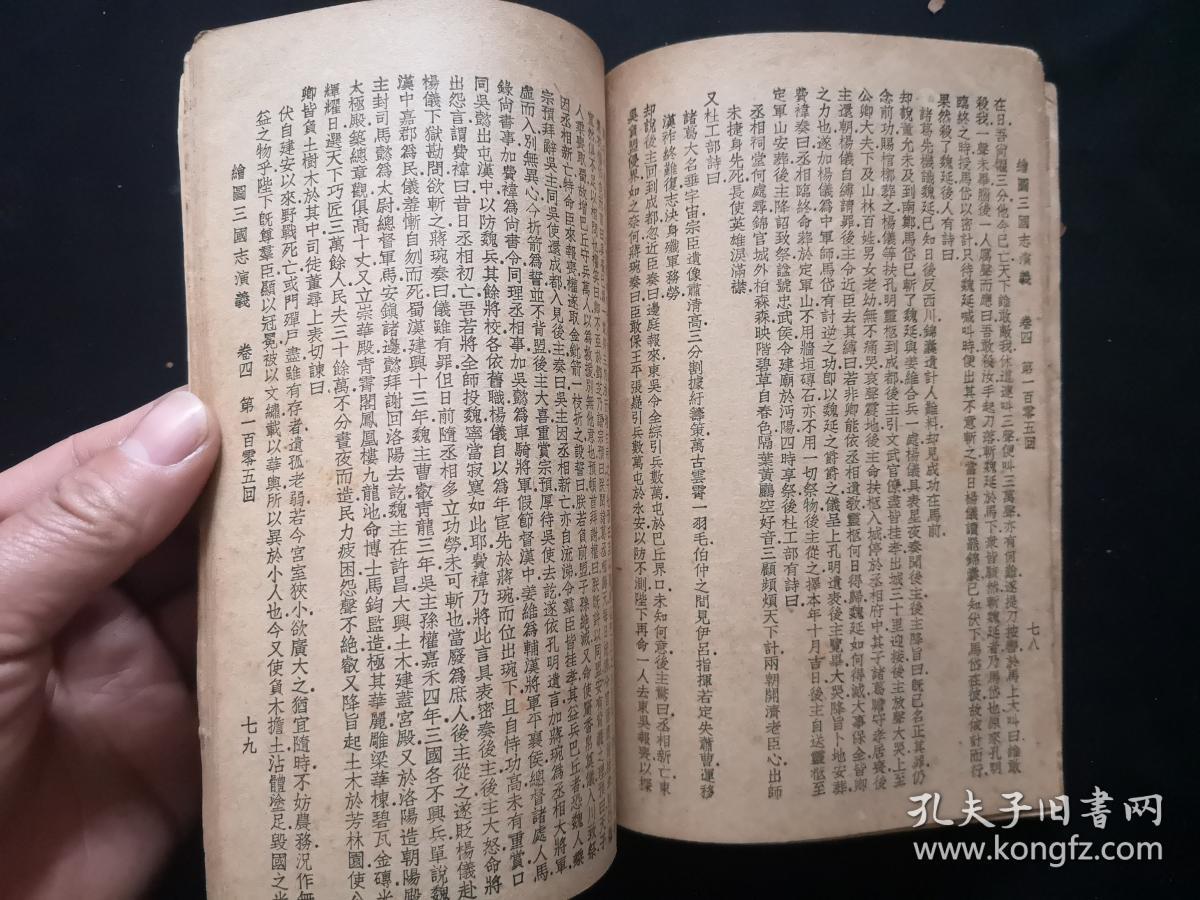 繪圖三國志演義 卷四 第一百零五回 七八
在日吾尚懼三分他今已亡天下誰敢敵我休道連叫三聲便叫三萬聲亦有何難遂提刀按轡於馬上大叫曰誰敢
殺我一聲未畢腦後一人厲聲而應曰吾敢殺汝手起刀落斬魏延於馬下衆皆駭然斬魏延者乃馬岱也原來孔明
臨終之時授馬岱以密計只待魏延喊叫時便出其不意斬之當日楊儀讀罷錦囊已知伏下馬岱在彼故依計而行
果然殺了魏延後人有詩曰
諸葛先機識魏延已知日後反西川錦囊遺計人難料却見成功在馬前
却說董允未及到南鄭馬岱已斬了魏延與姜維合兵一處楊儀具表星夜奏聞後主後主降旨曰旣已名正其罪仍
念前功賜棺槨葬之楊儀等扶孔明靈柩到成都後主引文武官僚盡皆挂孝出城二十里迎接後主放聲大哭上至
公卿大夫下及山林百姓男女老幼無不痛哭哀聲震地後主命扶柩入城停於丞相府中其子諸葛瞻守孝居喪後
主還朝楊儀自縛請罪後主令近臣去其縛曰若非卿能依丞相遺敎靈柩何日得歸魏延如何得滅大事保全皆卿
之力也遂加楊儀爲中軍師馬岱有討逆之功卽以魏延之爵爵之儀呈上孔明遺表後主覽畢大哭降旨卜地安葬
費禕奏曰丞相臨終命葬於定軍山不用牆垣磚石亦不用一切祭物後主從之擇本年十月吉日後主自送靈柩至
定軍山安葬後主降詔致祭諡號忠武侯令建廟於沔陽四時享祭後杜工部有詩曰
丞相祠堂何處尋錦官城外柏森森映階碧草自春色隔葉黃鸝空好音三顧頻煩天下計兩朝開濟老臣心出師
未捷身先死長使英雄淚滿襟
又杜工部詩曰
諸葛大名垂宇宙宗臣遺像肅清高三分割據紆籌策萬古雲霄一羽毛伯仲之間見伊呂指揮若定失蕭曹運移
漢祚終難復志決身殲軍務勞
却說後主回到成都忽近臣奏曰邊庭報來東吳令全綜引兵數萬屯於巴丘界口未知何意後主驚曰丞相新亡東
吳負盟侵界如之奈何蔣琬奏曰臣敢保王平張嶷引兵數萬屯於永安以防不測陛下再命一人去東吳報喪以探
人乘喪取蜀故增巴丘守兵萬人以爲救援別無他意也預頓首拜謝權曰朕旣許以同盟安有背義
因丞相新亡特命臣來報喪權遂取金鈚箭一枝折之設誓曰朕若負前盟子孫絕滅又命使齎香帛奠儀入川致祭
宗預拜辭吳主同吳使還成都入見後主奏曰吳主因丞相新亡亦自流涕令羣臣皆挂孝其益兵巴丘者恐魏人乘
虛而入別無異心今折箭爲誓並不背盟後主大喜重賞宗預厚待吳使去訖遂依孔明遺言加蔣琬爲丞相大將軍
錄尙書事加費禕爲尙書令同理丞相事加吳懿爲車騎將軍假節督漢中姜維爲輔漢將軍平襄侯總督諸處人馬
同吳懿出屯漢中以防魏兵其餘將校各依舊職楊儀自以爲年宦先於蔣琬而位出琬下且自恃功高未有重賞口
出怨言謂費禕曰昔日丞相初亡吾若將全師投魏寧當寂寞如此耶費禕乃將此言具表密奏後主後主大怒命將
楊儀下獄勘問欲斬之蔣琬奏曰儀雖有罪但日前隨丞相多立功勞未可斬也當廢爲庶人後主從之遂貶楊儀赴
漢中嘉郡爲民儀羞慚自刎而死蜀漢建興十三年魏主曹叡靑龍三年吳主孫權嘉禾四年三國各不興兵單說魏
主封司馬懿爲太尉總督軍馬安鎭諸邊懿拜謝回洛陽去訖魏主在許昌大興土木建蓋宮殿又於洛陽造朝陽殿
太極殿築總章觀俱高十丈又立崇華殿靑霄閣鳳凰樓九龍池命博士馬鈞監造極其華麗雕梁華棟碧瓦金磚光
輝耀日選天下巧匠三萬餘人民夫三十餘萬不分晝夜而造民力疲困怨聲不絕叡又降旨起土木於芳林園使公
卿皆負土樹木於其中司徒董尋上表切諫曰
伏自建安以來野戰死亡或門殫戶盡雖有存者遺孤老弱若今宮室狹小欲廣大之猶宜隨時不妨農務況作無
益之物乎陛下旣尊羣臣顯以冠冕被以文繡載以華輿所以異於小人也今又使負木擔土沾體塗足毀國之光
繪圖三國志演義 卷四 第一百零五回 七九
孔夫子旧书网
www.kongfz.com